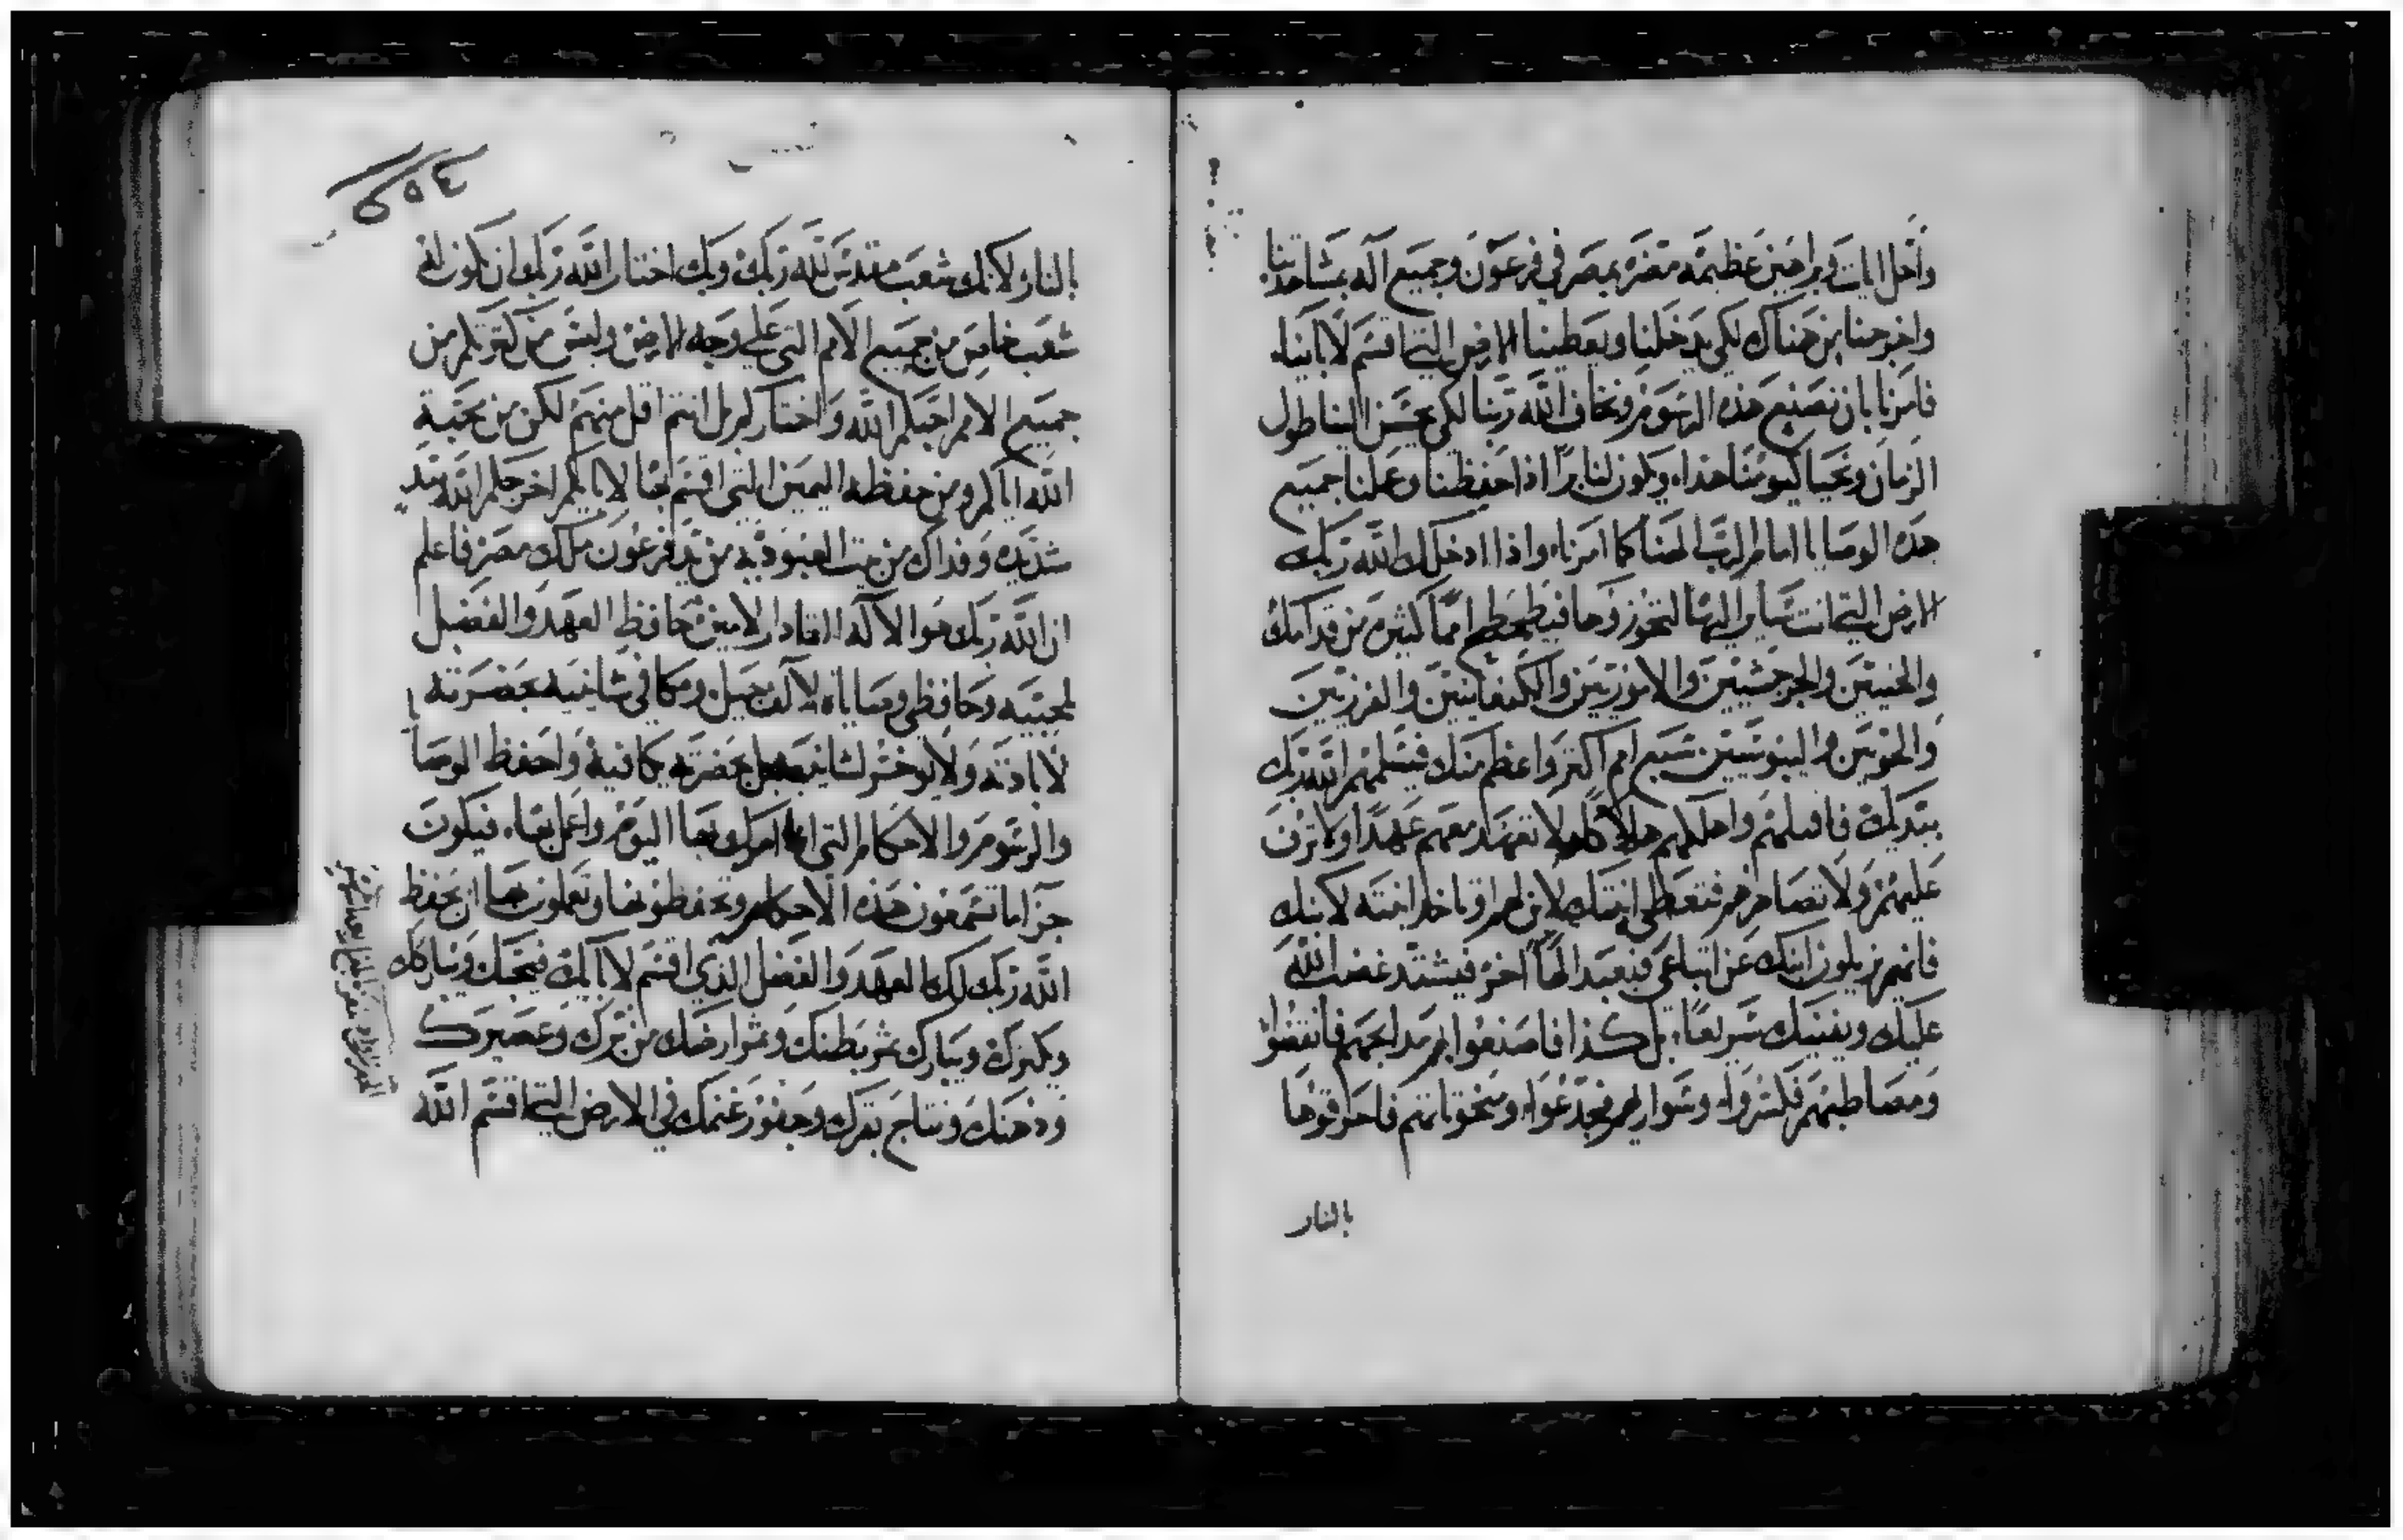 واحل ايات وبراهين عظيمة مضرة بمصر في فرعون وجميع آله بمشاهدتنا
واخرجنا من هناك لكي يدخلنا ويعطينا الارض التي اقسم لابائنا
فامرنا بان نصنع هذه الرسوم ونخاف الله ربنا لكي يحسن الينا طول
الزمان ونحيا كيومنا هذا ويكون لنا برا اذا حفظنا وعملنا جميع
هذه الوصايا امام الرب الهنا كما امرنا واذا ادخلك الله ربك
الارض التي انت سائر اليها لتحوزوها فيطحطح امما كثيرة من قدامك
والحيثيين والجرجشيين والاموريين والكنعانيين والفرزيين
والحويين واليبوسيين سبع امم اكثر واعظم منك فيسلمهم الله ربك
بيديك فاقتلهم واهلكهم هلاكا لا تعهد معهم عهدا ولا ترف
عليهم ولا تصاهرهم فتعطي ابنتك لابن لهم اوتاخذ ابنته لابنك
فانهم يزيلون ابنك عن اتباعي فيعبد الها اخر فيشتد غضب الله
عليك ويفنيك سريعا بل كذا فاصنعوا بهم مذابحهم فانقضوا
ومصاطبهم فكسروا وسواريهم فجدعوا ومنحوتاتهم فاحرقوها
بالنار
٤٥٥
بالنار لانك شعب مقدس لله ربك وبك اختار الله ربك ان تكون له
شعب خاص من جميع الامم التي على وجه الارض وليس من كثرتكم من
جميع الامم احبكم الله واختاركم بل انتم اقل منهم لكن من محبة
الله اياكم ومن حفظه اليمين التي اقسم بها لابايكم اخرجكم الله بيد
شديدة وفداك من بيت العبودية من يد فرعون ملك مصر فاعلم
ان الله ربك هو الاله القادر الامين حافظ العهد والفضل
لمحبيه وحافظي وصاياه لالف جيل ومكافي شانيه بحضرته
لابادته ولا يوخر لشانيه بل بحضرته يكافيه واحفظ الوصايا
والرسوم والاحكام التي انا امرك بها اليوم واعمل بها فيكون
جزا ما تسمعون هذه الاحكام وتحفظونها وتعملون بها ان يحفظ
الله ربك لك العهد والفضل الذي اقسم لابايك فيحبك ويباركك
ويكثرك ويبارك ثمر بطنك وثمر ارضك من برك وعصيرك
ودهنك ونتاج بقرك وجفور غنمك في الارض التي اقسم الله